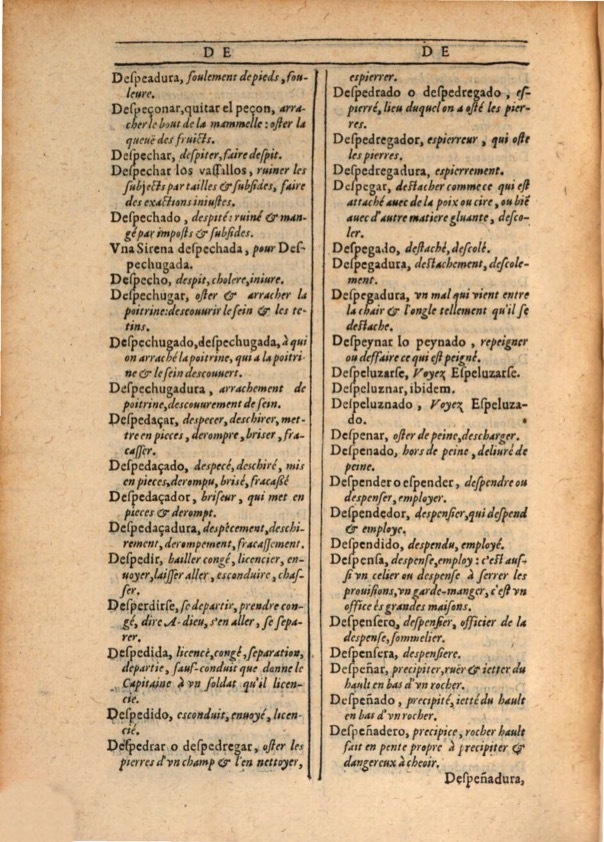 DE
Deſpeadura, foulement de pieds, fou-
leure.
Deſpeçonar, quitar el peçon, arra-
cher le bout de la mammelle: oſter la
queuë des fruicts.
Deſpechar, deſpiter, faire deſpit.
Deſpechar los vaſſallos, ruiner les
ſubjects par tailles & ſubſides, faire
des exactions iniuſtes.
Deſpechado, deſpité: ruiné & man-
gé par impoſts & ſubſides.
Vna Sirena deſpechada, pour Deſ-
pechugada.
Deſpecho, deſpit, cholere, iniure.
Deſpechugar, oſter & arracher la
poitrine: deſcouurir le ſein & les te-
tins.
Deſpechugado, deſpechugada, à qui
on arraché la poitrine, qui a la poitri
ne & le ſein deſcouuert.
Deſpechugadura, arrachement de
poitrine, deſcouurement de ſein.
Deſpedaçar, deſpecer, deſchirer, met-
tre en pieces, derompre, briſer, fra-
caſſer.
Deſpedaçado, deſpecé, deſchiré, mis
en pieces, derompu, briſé, fracaſſé
Deſpedaçador, briſeur, qui met en
pieces & derompt.
Deſpedaçadura, deſpècement, deſchi-
rement, derompement, fracaſſement.
Deſpedir, bailler congé, licencier, en-
uoyer, laiſſer aller, esconduire, chaſ-
ſer.
Deſperdirſe, ſe departir, prendre con-
gé, dire A-dieu, s'en aller, ſe ſepa-
rer.
Deſpedida, licencè, congé, ſeparation,
departie, ſauf-conduit que donne le
Capitaine à vn ſoldat qu'il licen-
cie.
Deſpedido, esconduit, enuoyé, licen-
cié.
Deſpedrar o deſpedregar, oſter les
pierres d'vn champ & l'en nettoyer,
DE
espierrer.
Deſpedrado o deſpedregado, eſ-
pierré, lieu duquel on a oſté les pier-
res.
Deſpedregador, espierreur, qui oſte
les pierres.
Deſpedregadura, espierrement.
Deſpegar, deſtacher comme ce qui eſt
attaché auec de la poix ou cire, ou biē
auec d'autre matiere gluante, deſco-
ler.
Deſpegado, deſtaché, deſcolé.
Deſpegadura, deſtachement, deſcole-
ment.
Deſpegadura, vn mal qui vient entre
la chair & l'ongle tellement qu'il ſe
deſtache.
Deſpeynar lo peynado, repeigner
ou deffaire ce qui eſt peigné.
Deſpeluzarſe, Voyez Eſpeluzarſe.
Deſpeluznar, ibidem.
Deſpeluznado, Voyez Eſpeluza-
do.
Deſpenar, oſter de peine, deſcharger.
Deſpenado, hors de peine, deliuré de
peine.
Deſpender o eſpender, deſpendre ou
deſpenſer, employer.
Deſpendedor, deſpenſier, qui deſpend
& employe.
Deſpendido, deſpendu, employé.
Deſpenſa, deſpenſe, employ: c'eſt auſ-
ſi vn celier ou deſpense à ſerrer les
prouiſions, vn garde-manger, c'eſt vn
office ès grandes maiſons.
Deſpenſero, deſpenſier, officier de la
deſpense, ſommelier.
Deſpenſera, deſpenſiere.
Deſpeñar, precipiter, ruër & ietter du
hault en bas d'vn rocher.
Deſpeñado, precipité, ietté du hault
en bas d'vn rocher.
Deſpeñadero, precipice, rocher hault
fait en pente propre à precipiter &
dangereux à cheoir.
Deſpeñadura,